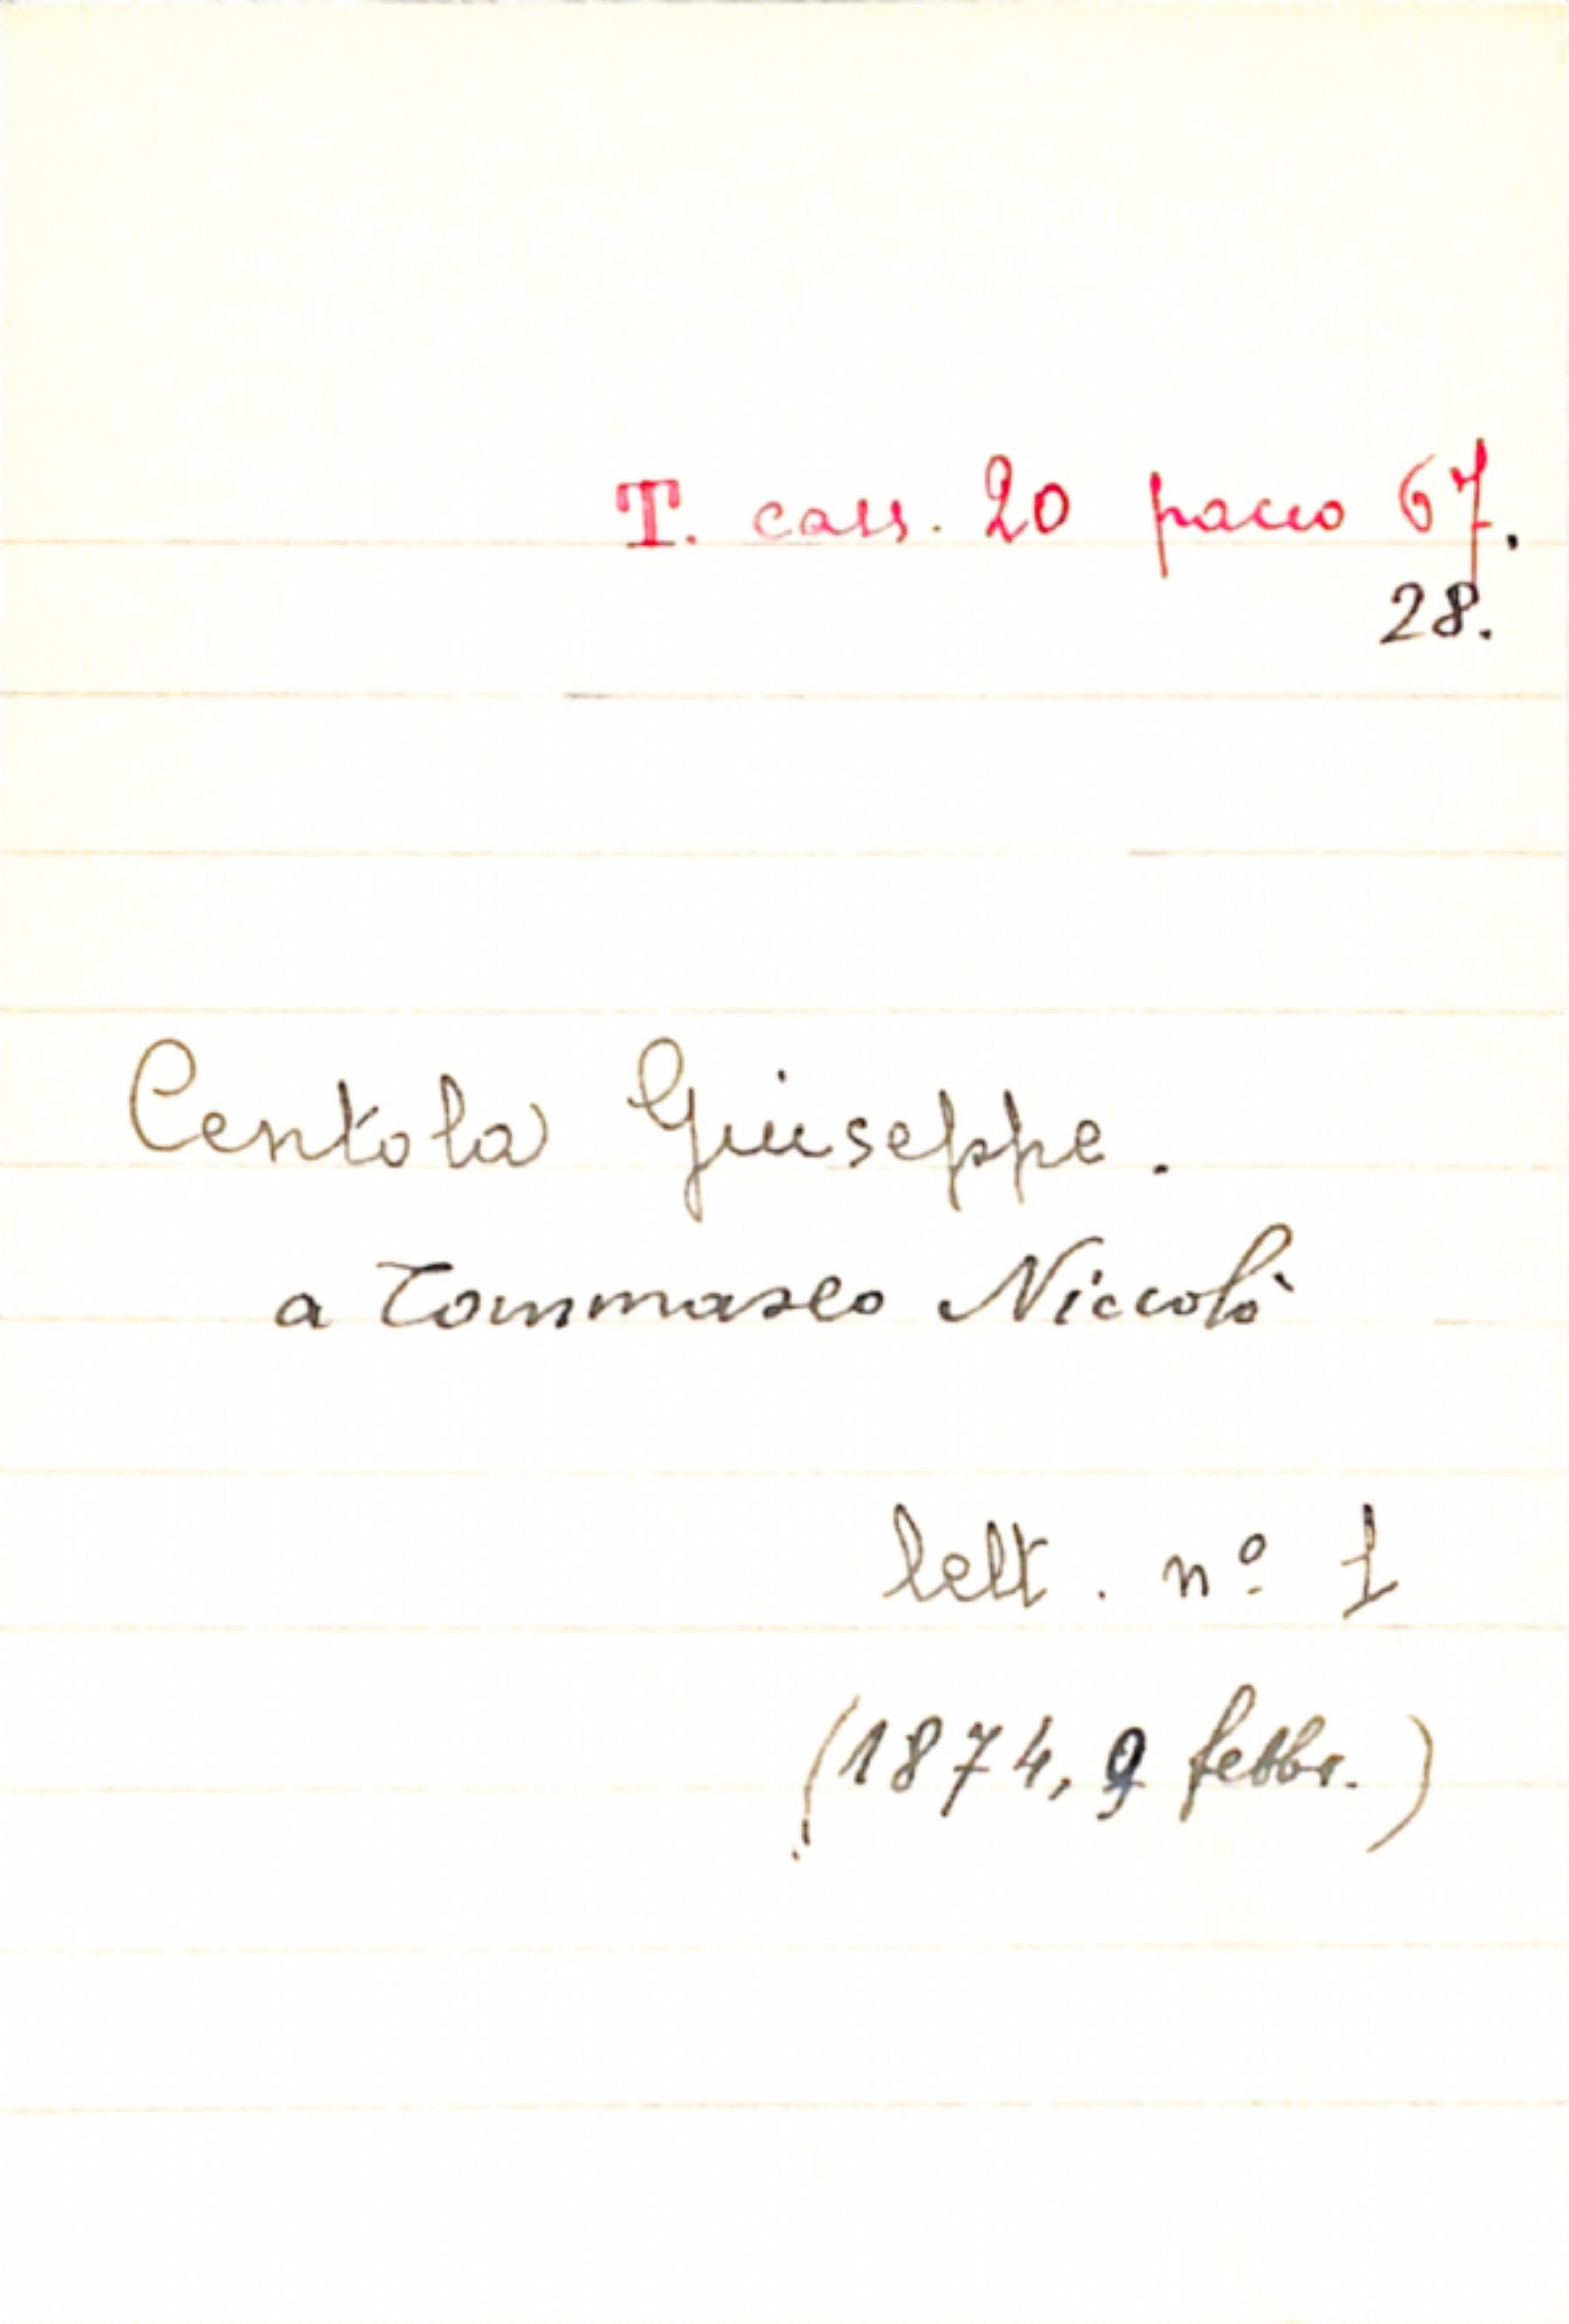 T. cass. 20 pacco 67.
28.
Centola Giuseppe.
a Tommaseo Niccolò
lett. nº 1
(1874, 9 febbr.)